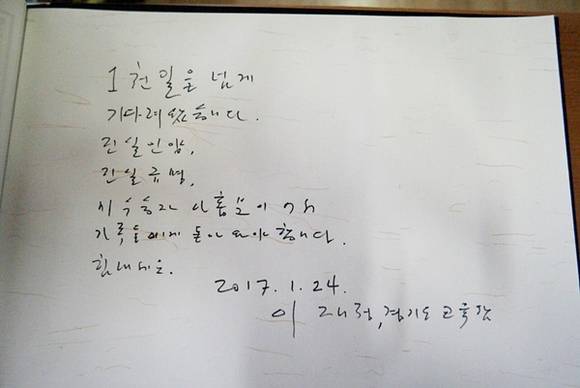 1천일을 넘게
기다려 왔습니다.
진실인양,
진실규명,
미수습자 아홉분이
가족들에게 돌아와야합니다.
힘내세요.
2017. 1. 24.
이재정, 경기도교육감